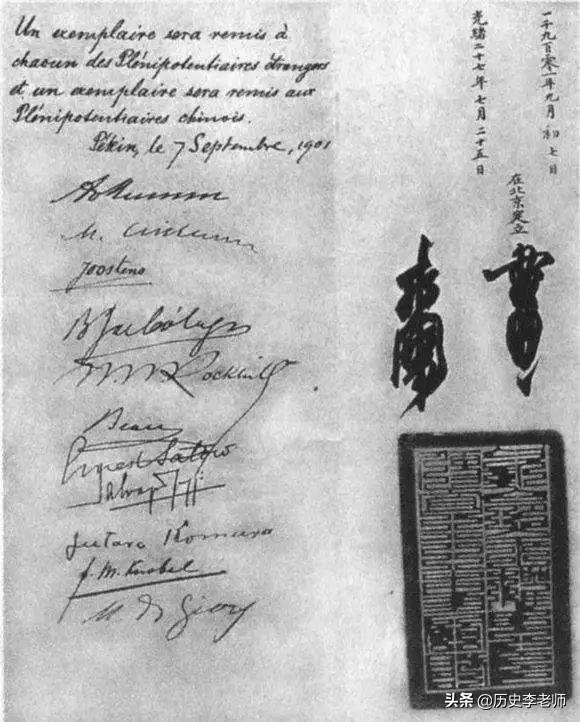 Un exemplaire sera remis à
chacun des Plénipotentiaires étrangers
et un exemplaire sera remis aux
Plénipotentiaires chinois.
Pékin, le 7 Septembre, 1901
Joostens
Rockhill
Beau
Ernest Satow
Jutaro Komura
F. M. Knobel
M. de Giers
一千九百零一年九月初七日
光緒二十七年七月二十五日
在北京定立
头条 @历史李老师